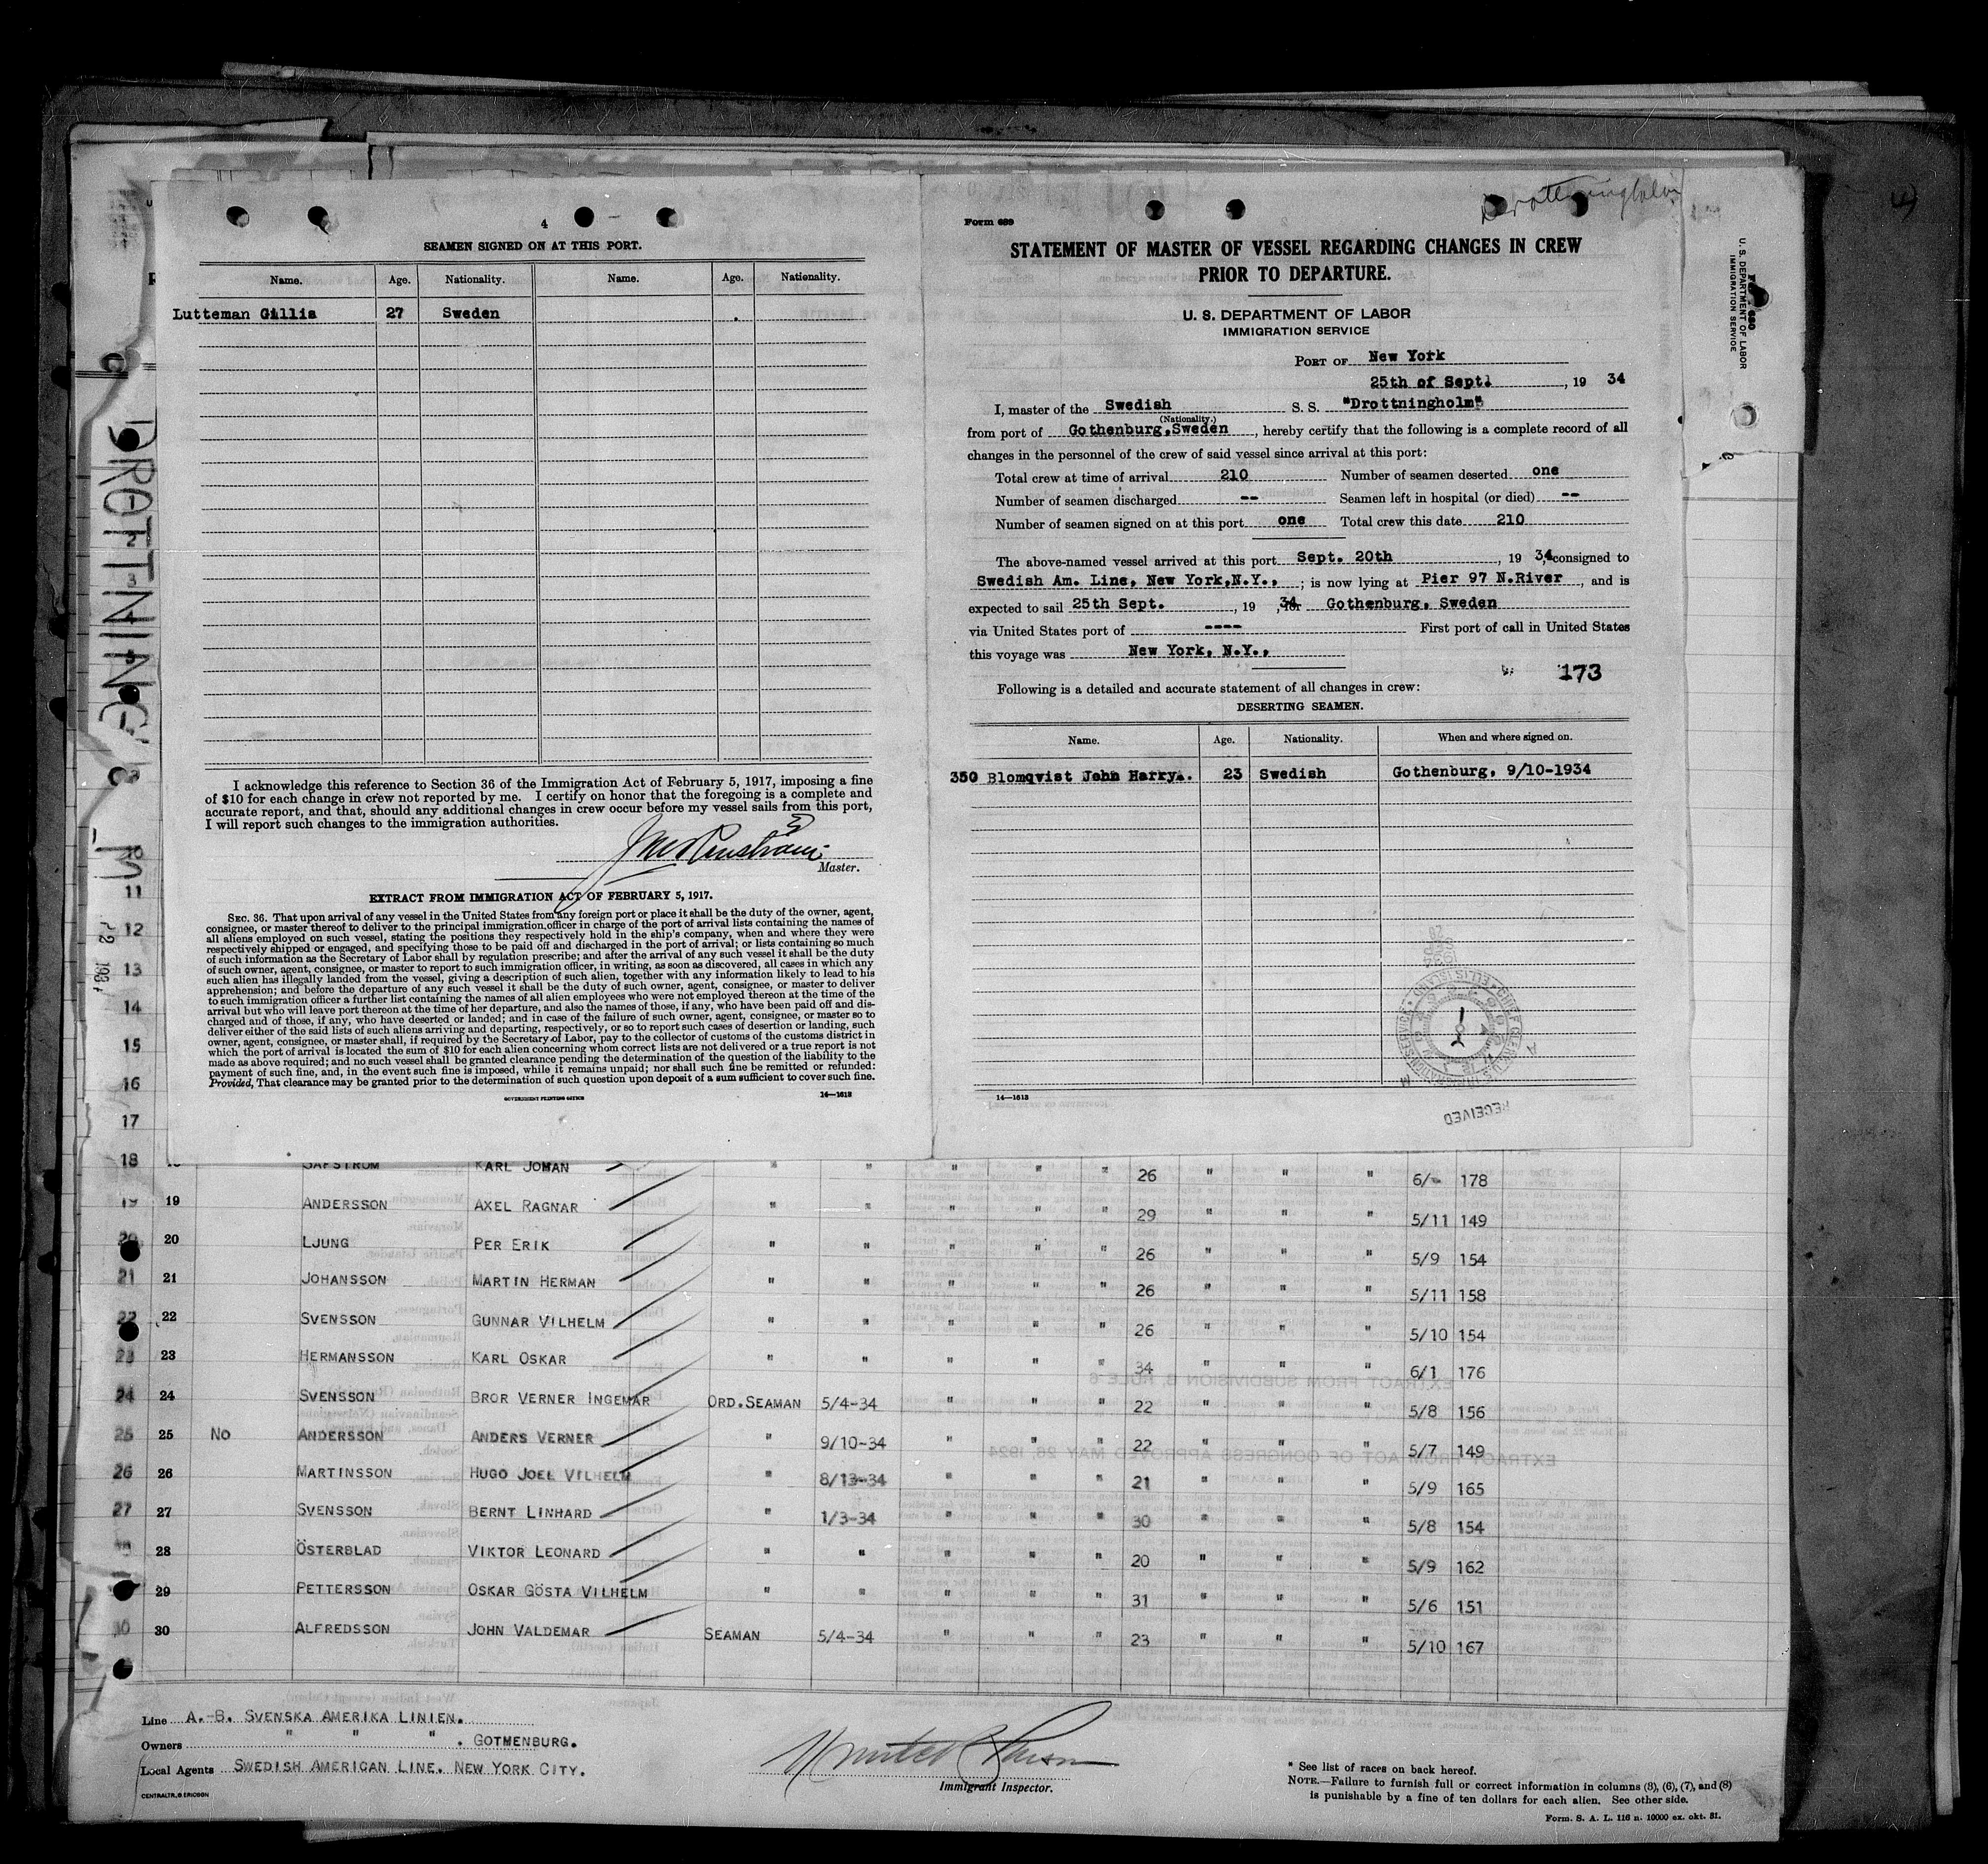 4
SEAMEN SIGNED ON AT THIS PORT.
Name. Age. Nationality. Name. Age. Nationality.
Lutteman Gillis 27 Sweden
I acknowledge this reference to Section 36 of the Immigration Act of February 5, 1917, imposing a fine
of $10 for each change in crew not reported by me. I certify on honor that the foregoing is a complete and
accurate report, and that, should any additional changes in crew occur before my vessel sails from this port,
I will report such changes to the immigration authorities.
Master.
EXTRACT FROM IMMIGRATION ACT OF FEBRUARY 5, 1917.
SEC. 36. That upon arrival of any vessel in the United States from any foreign port or place it shall be the duty of the owner, agent,
consignee, or master thereof to deliver to the principal immigration officer in charge of the port of arrival lists containing the names of
all aliens employed on such vessel, stating the positions they respectively hold in the ship's company, when and where they were
respectively shipped or engaged, and specifying those to be paid off and discharged in the port of arrival; or lists containing so much
of such information as the Secretary of Labor shall by regulation prescribe; and after the arrival of any such vessel it shall be the duty
of such owner, agent, consignee, or master to report to such immigration officer, in writing, as soon as discovered, all cases in which any
such alien has illegally landed from the vessel, giving a description of such alien, together with any information likely to lead to his
apprehension; and before the departure of any such vessel it shall be the duty of such owner, agent, consignee, or master to deliver
to such immigration officer a further list containing the names of all alien employees who were not employed thereon at the time of the
arrival but who will leave port thereon at the time of her departure, and also the names of those, if any, who have been paid off and dis-
charged and of those, if any, who have deserted or landed; and in case of the failure of such owner, agent, consignee, or master so to
deliver either of the said lists of such aliens arriving and departing, respectively, or so to report such cases of desertion or landing, such
owner, agent, consignee, or master shall, if required by the Secretary of Labor, pay to the collector of customs of the customs district in
which the port of arrival is located the sum of $10 for each alien concerning whom correct lists are not delivered or a true report is not
made as above required; and no such vessel shall be granted clearance pending the determination of the question of the liability to the
payment of such fine, and, in the event such fine is imposed, while it remains unpaid; nor shall such fine be remitted or refunded:
Provided, That clearance may be granted prior to the determination of such question upon deposit of a sum sufficient to cover such fine.
GOVERNMENT PRINTING OFFICE 14—1613
Drottningholm
Form 689
STATEMENT OF MASTER OF VESSEL REGARDING CHANGES IN CREW
PRIOR TO DEPARTURE.
U. S. DEPARTMENT OF LABOR
IMMIGRATION SERVICE
PORT OF New York
25th of Sept. , 19 34
I, master of the Swedish S. S. "Drottningholm"
(Nationality.)
from port of Gothenburg,Sweden , hereby certify that the following is a complete record of all
changes in the personnel of the crew of said vessel since arrival at this port:
Total crew at time of arrival 210 Number of seamen deserted one
Number of seamen discharged -- Seamen left in hospital (or died) --
Number of seamen signed on at this port one Total crew this date 210
The above-named vessel arrived at this port Sept. 20th , 19 34, consigned to
Swedish Am. Line, New York,N.Y., ; is now lying at Pier 97 N.River , and is
expected to sail 25th Sept. , 19 34, for Gothenburg, Sweden
via United States port of ---- First port of call in United States
this voyage was New York, N.Y.,
173
Following is a detailed and accurate statement of all changes in crew:
DESERTING SEAMEN.
Name. Age. Nationality. When and where signed on.
350 Blomqvist John Harry. 23 Swedish Gothenburg, 9/10-1934
14—1613
RECEIVED
U. S. DEPARTMENT OF LABOR
IMMIGRATION SERVICE
DROTTNINGHOLM
2
3
11
12
13
14
15
16
17
18 KARL JOHAN " " " " " 26 " " " 6/- 178
19 19 ANDERSSON AXEL RAGNAR " " " " " 29 " " " 5/11 149
20 20 LJUNG PER ERIK " " " " " 26 " " " 5/9 154
21 21 JOHANSSON MARTIN HERMAN " " " " " 26 " " " 5/11 158
22 22 SVENSSON GUNNAR VILHELM " " " " " 26 " " " 5/10 154
23 23 HERMANSSON KARL OSKAR " " " " " 34 " " " 6/1 176
24 24 SVENSSON BROR VERNER INGEMAR ORD.SEAMAN 5/4-34 " " " 22 " " " 5/8 156
25 25 NO ANDERSSON ANDERS VERNER " 9/10-34 " " " 22 " " " 5/7 149
26 26 MARTINSSON HUGO JOEL VILHELM " 8/13-34 " " " 21 " " " 5/9 165
27 27 SVENSSON BERNT LINHARD " 1/3-34 " " " 30 " " " 5/8 154
28 ÖSTERBLAD VIKTOR LEONARD " " " " " 20 " " " 5/9 162
29 PETTERSSON OSKAR GÖSTA VILHELM " " " " " 31 " " " 5/6 151
30 30 ALFREDSSON JOHN VALDEMAR SEAMAN 5/4-34 " " " 23 " " " 5/10 167
Line A.-B. SVENSKA AMERIKA LINIEN.
Owners " " " . GOTHENBURG.
Local Agents SWEDISH AMERICAN LINE. NEW YORK CITY.
CENTRALTR, G ERICSON
Immigrant Inspector.
* See list of races on back hereof.
NOTE.—Failure to furnish full or correct information in columns (3), (6), (7), and (8)
is punishable by a fine of ten dollars for each alien. See other side.
Form. S. A. L. 116 n. 10000 ex. okt. 31.